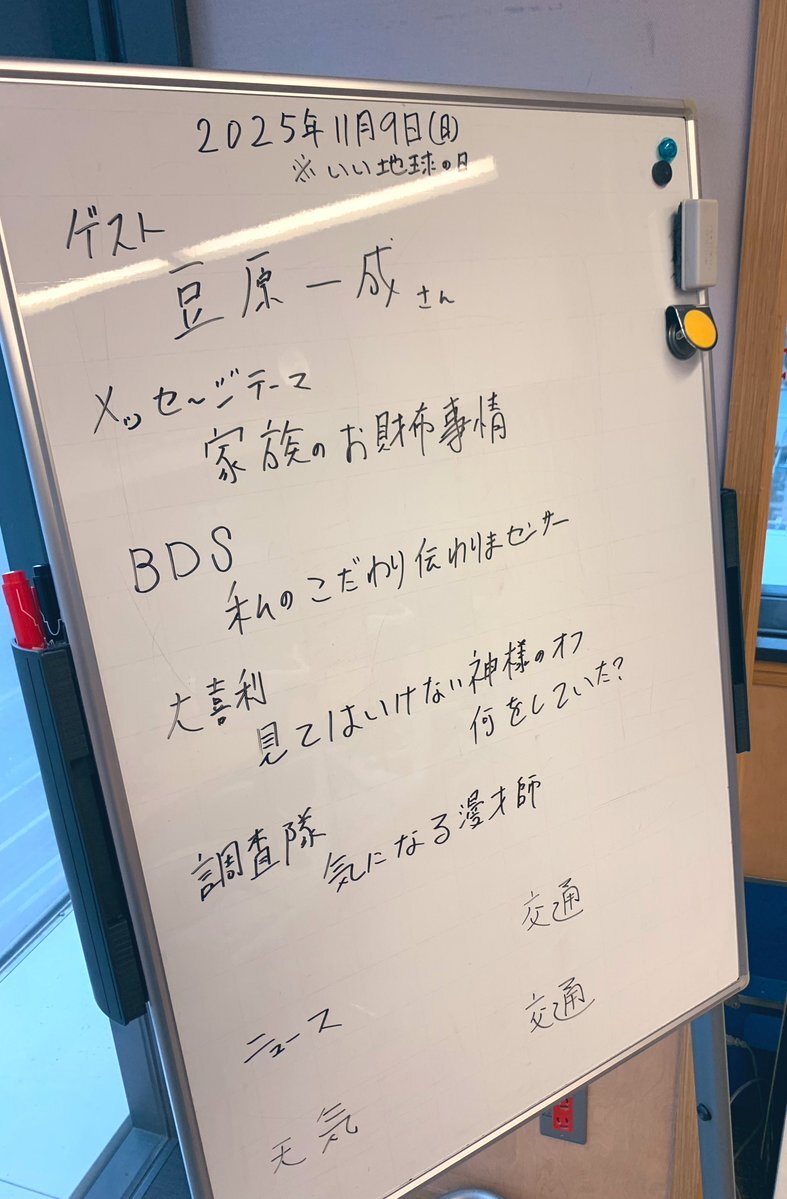 2025年11月9日(日)
※いい地球の日
ゲスト
豆原一成さん
メッセージテーマ
家族のお財布事情
BDS
私のこだわり伝わりまセンサー
大喜利
見てはいけない神様のオフ
何をしていた?
調査隊
気になる漫才師
交通
ニュース
交通
天気